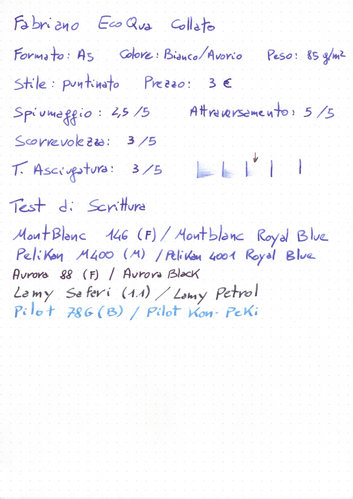 Fabriano EcoQua Collato
Formato: A5 Colore: Bianco/Avorio Peso: 85 g/m²
Stile: puntinato Prezzo: 3 €
Spiumaggio: 2,5/5 Attraversamento: 5/5
Scorrevolezza: 3/5
T. Asciugatura: 3/5
Test di Scrittura
MontBlanc 146 (F) / Montblanc Royal Blue
Pelikan M400 (M) / Pelikan 4001 Royal Blue
Aurora 88 (F) / Aurora Black
Lamy Safari (1.1) / Lamy Petrol
Pilot 78G (B) / Pilot Kon-Peki